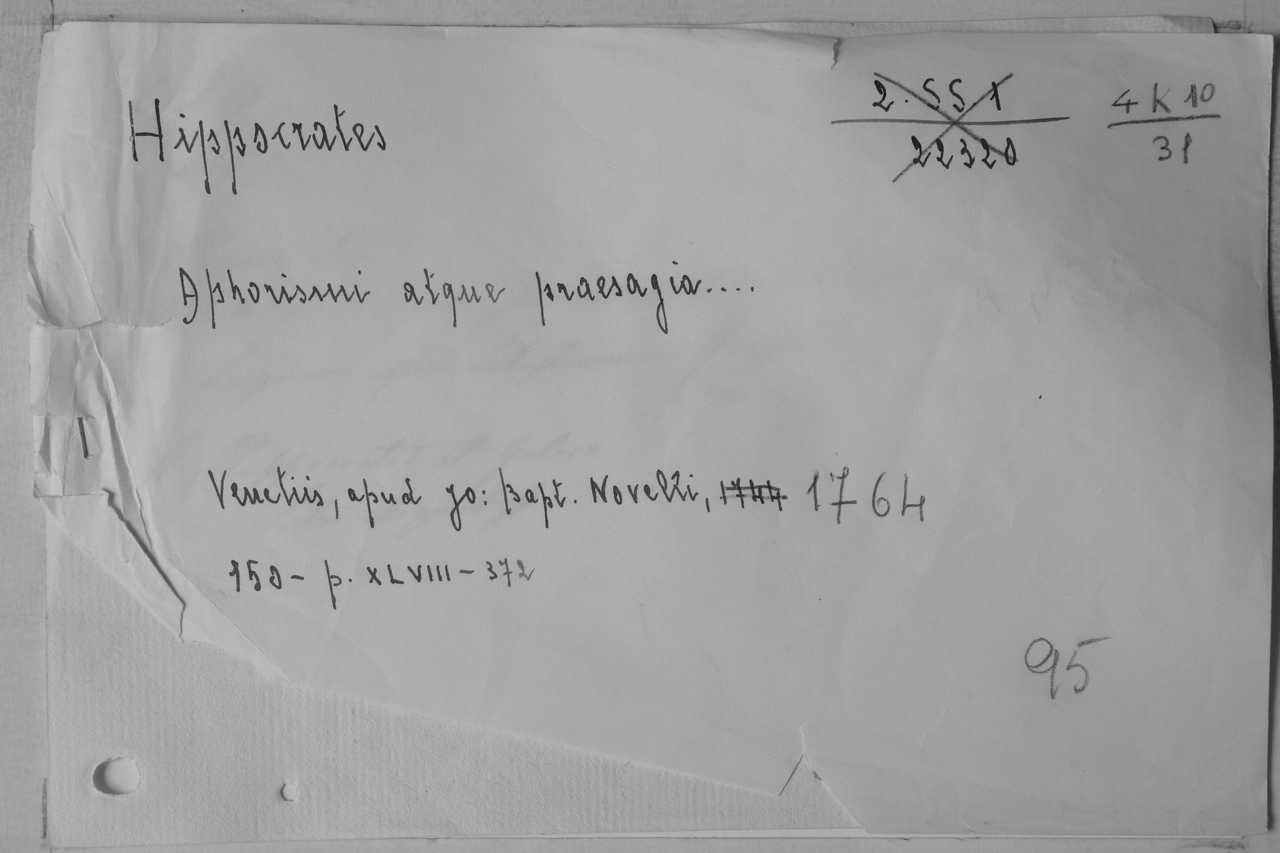 Hippocrates
2.SS 1
22320
4 K 10
31
Aphorismi atque praesagia....
Venetiis, apud Jo: Bapt. Novelli, 1744 1764
15o- p. XLVIII-372
95